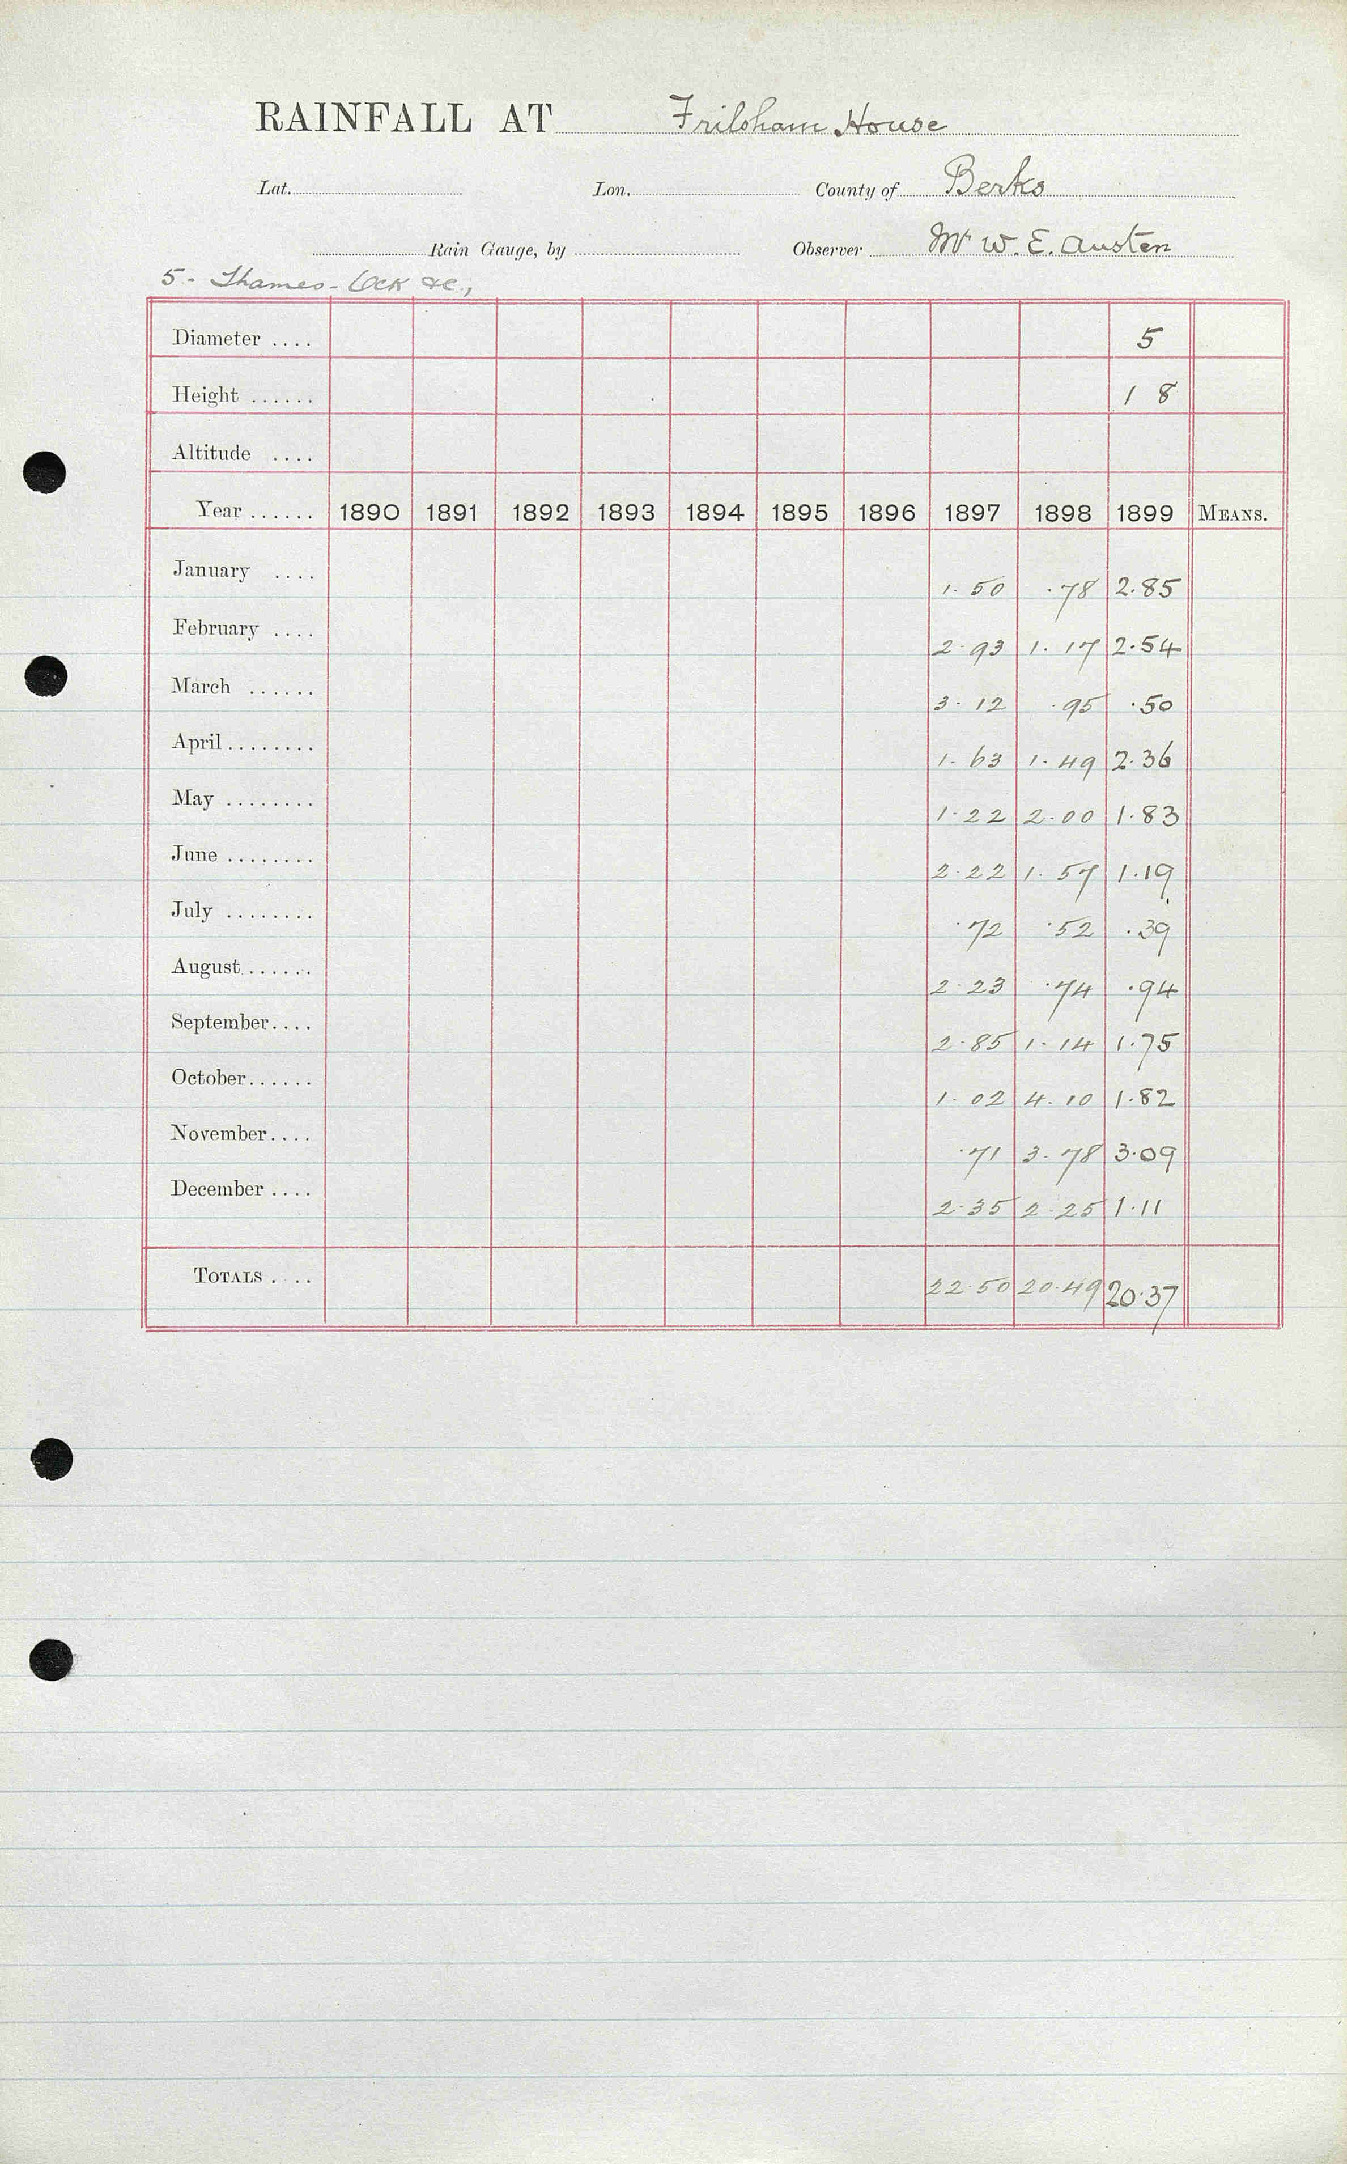 RAINFALL AT Frilsham House
Lat. Lon. County of Berks
Rain Gauge, by Observer Mr W. E. Austen
5 - Thames - Ock &c.,
Diameter .... 5
Height ...... 1 8
Altitude ....
Year ...... 1890 1891 1892 1893 1894 1895 1896 1897 1898 1899 MEANS.
January .... 1.50 .78 2.85
February .... 2.93 1.17 2.54
March ...... 3.12 .95 .50
April ........ 1.63 1.49 2.36
May ........ 1.22 2.00 1.83
June ........ 2.22 1.57 1.19
July ........ .72 .52 .39
August ...... 2.23 .74 .94
September .... 2.85 1.14 1.75
October ...... 1.02 4.10 1.82
November .... .71 3.78 3.09
December .... 2.35 2.25 1.11
TOTALS .... 22.50 20.49 20.37